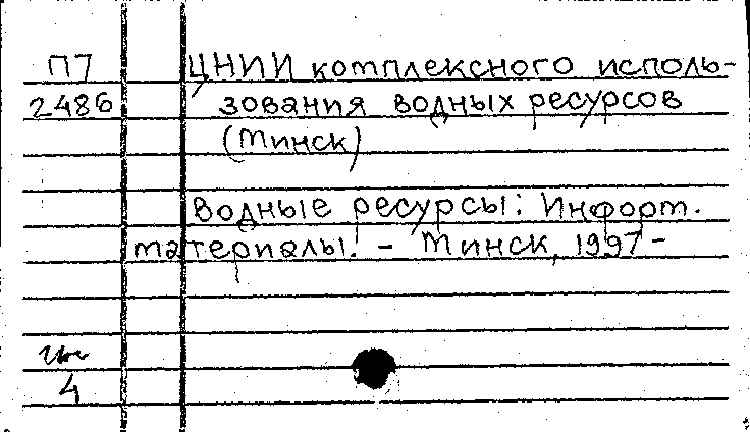 П7 ЦНИИ комплексного исполь-
2486 зования водных ресурсов
(Минск)
Водные ресурсы: Информ.
материалы. - Минск, 1997-
4